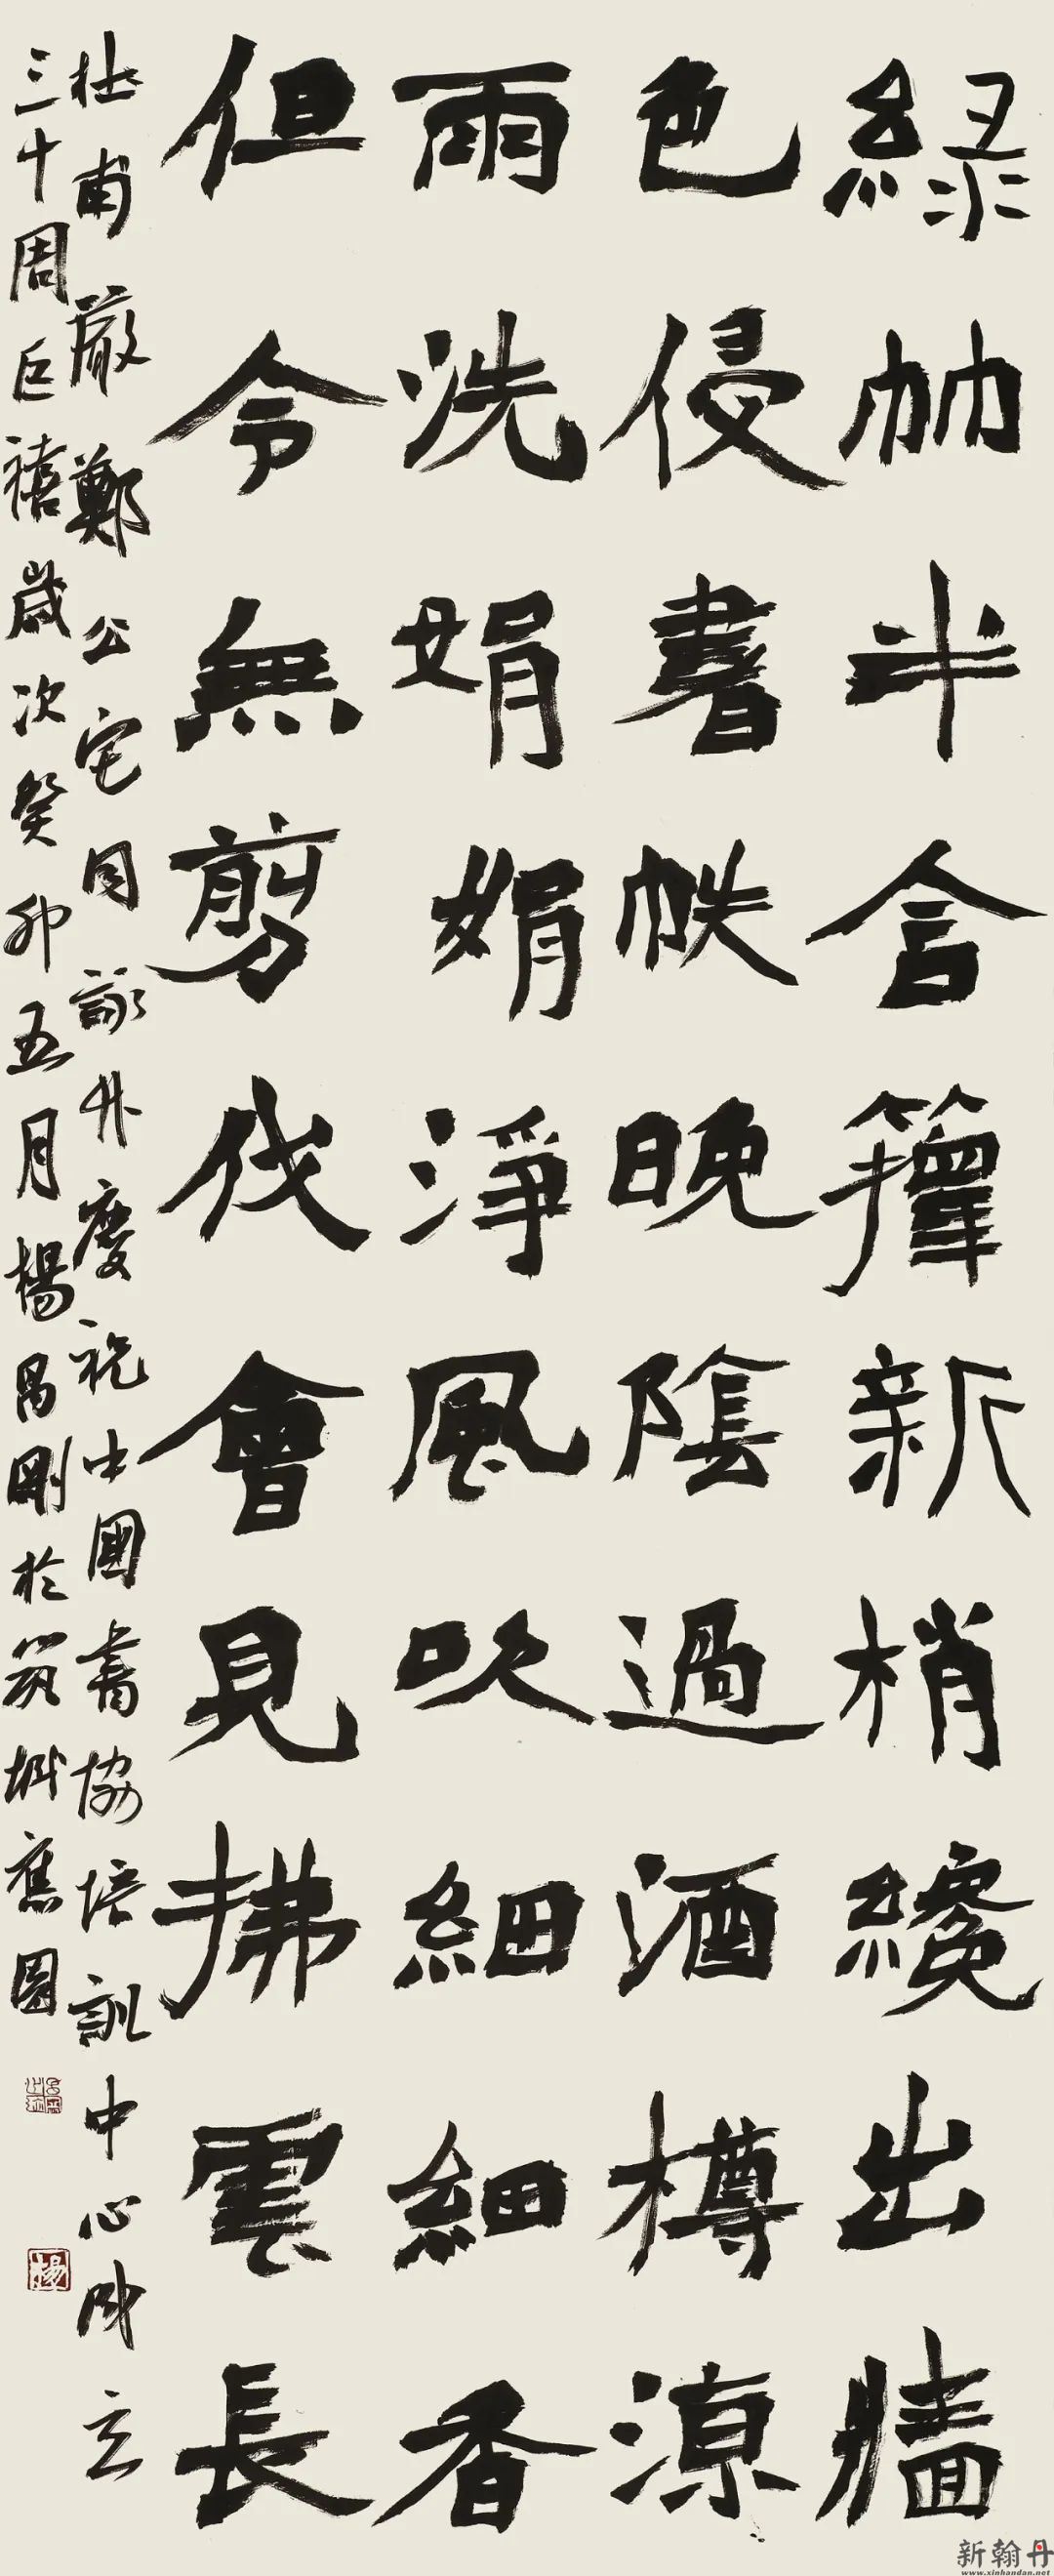 綠竹半含籜新梢纔出牆
色侵書帙晚陰過酒樽涼
雨洗娟娟淨風吹細細香
但令無剪伐會見拂雲長
杜甫嚴鄭公宅同詠竹慶祝中國書協培訓中心成立
三十周年禧歲次癸卯五月楊昌剛於筑城舊園
楊
新翰丹
www.xinhandan.net